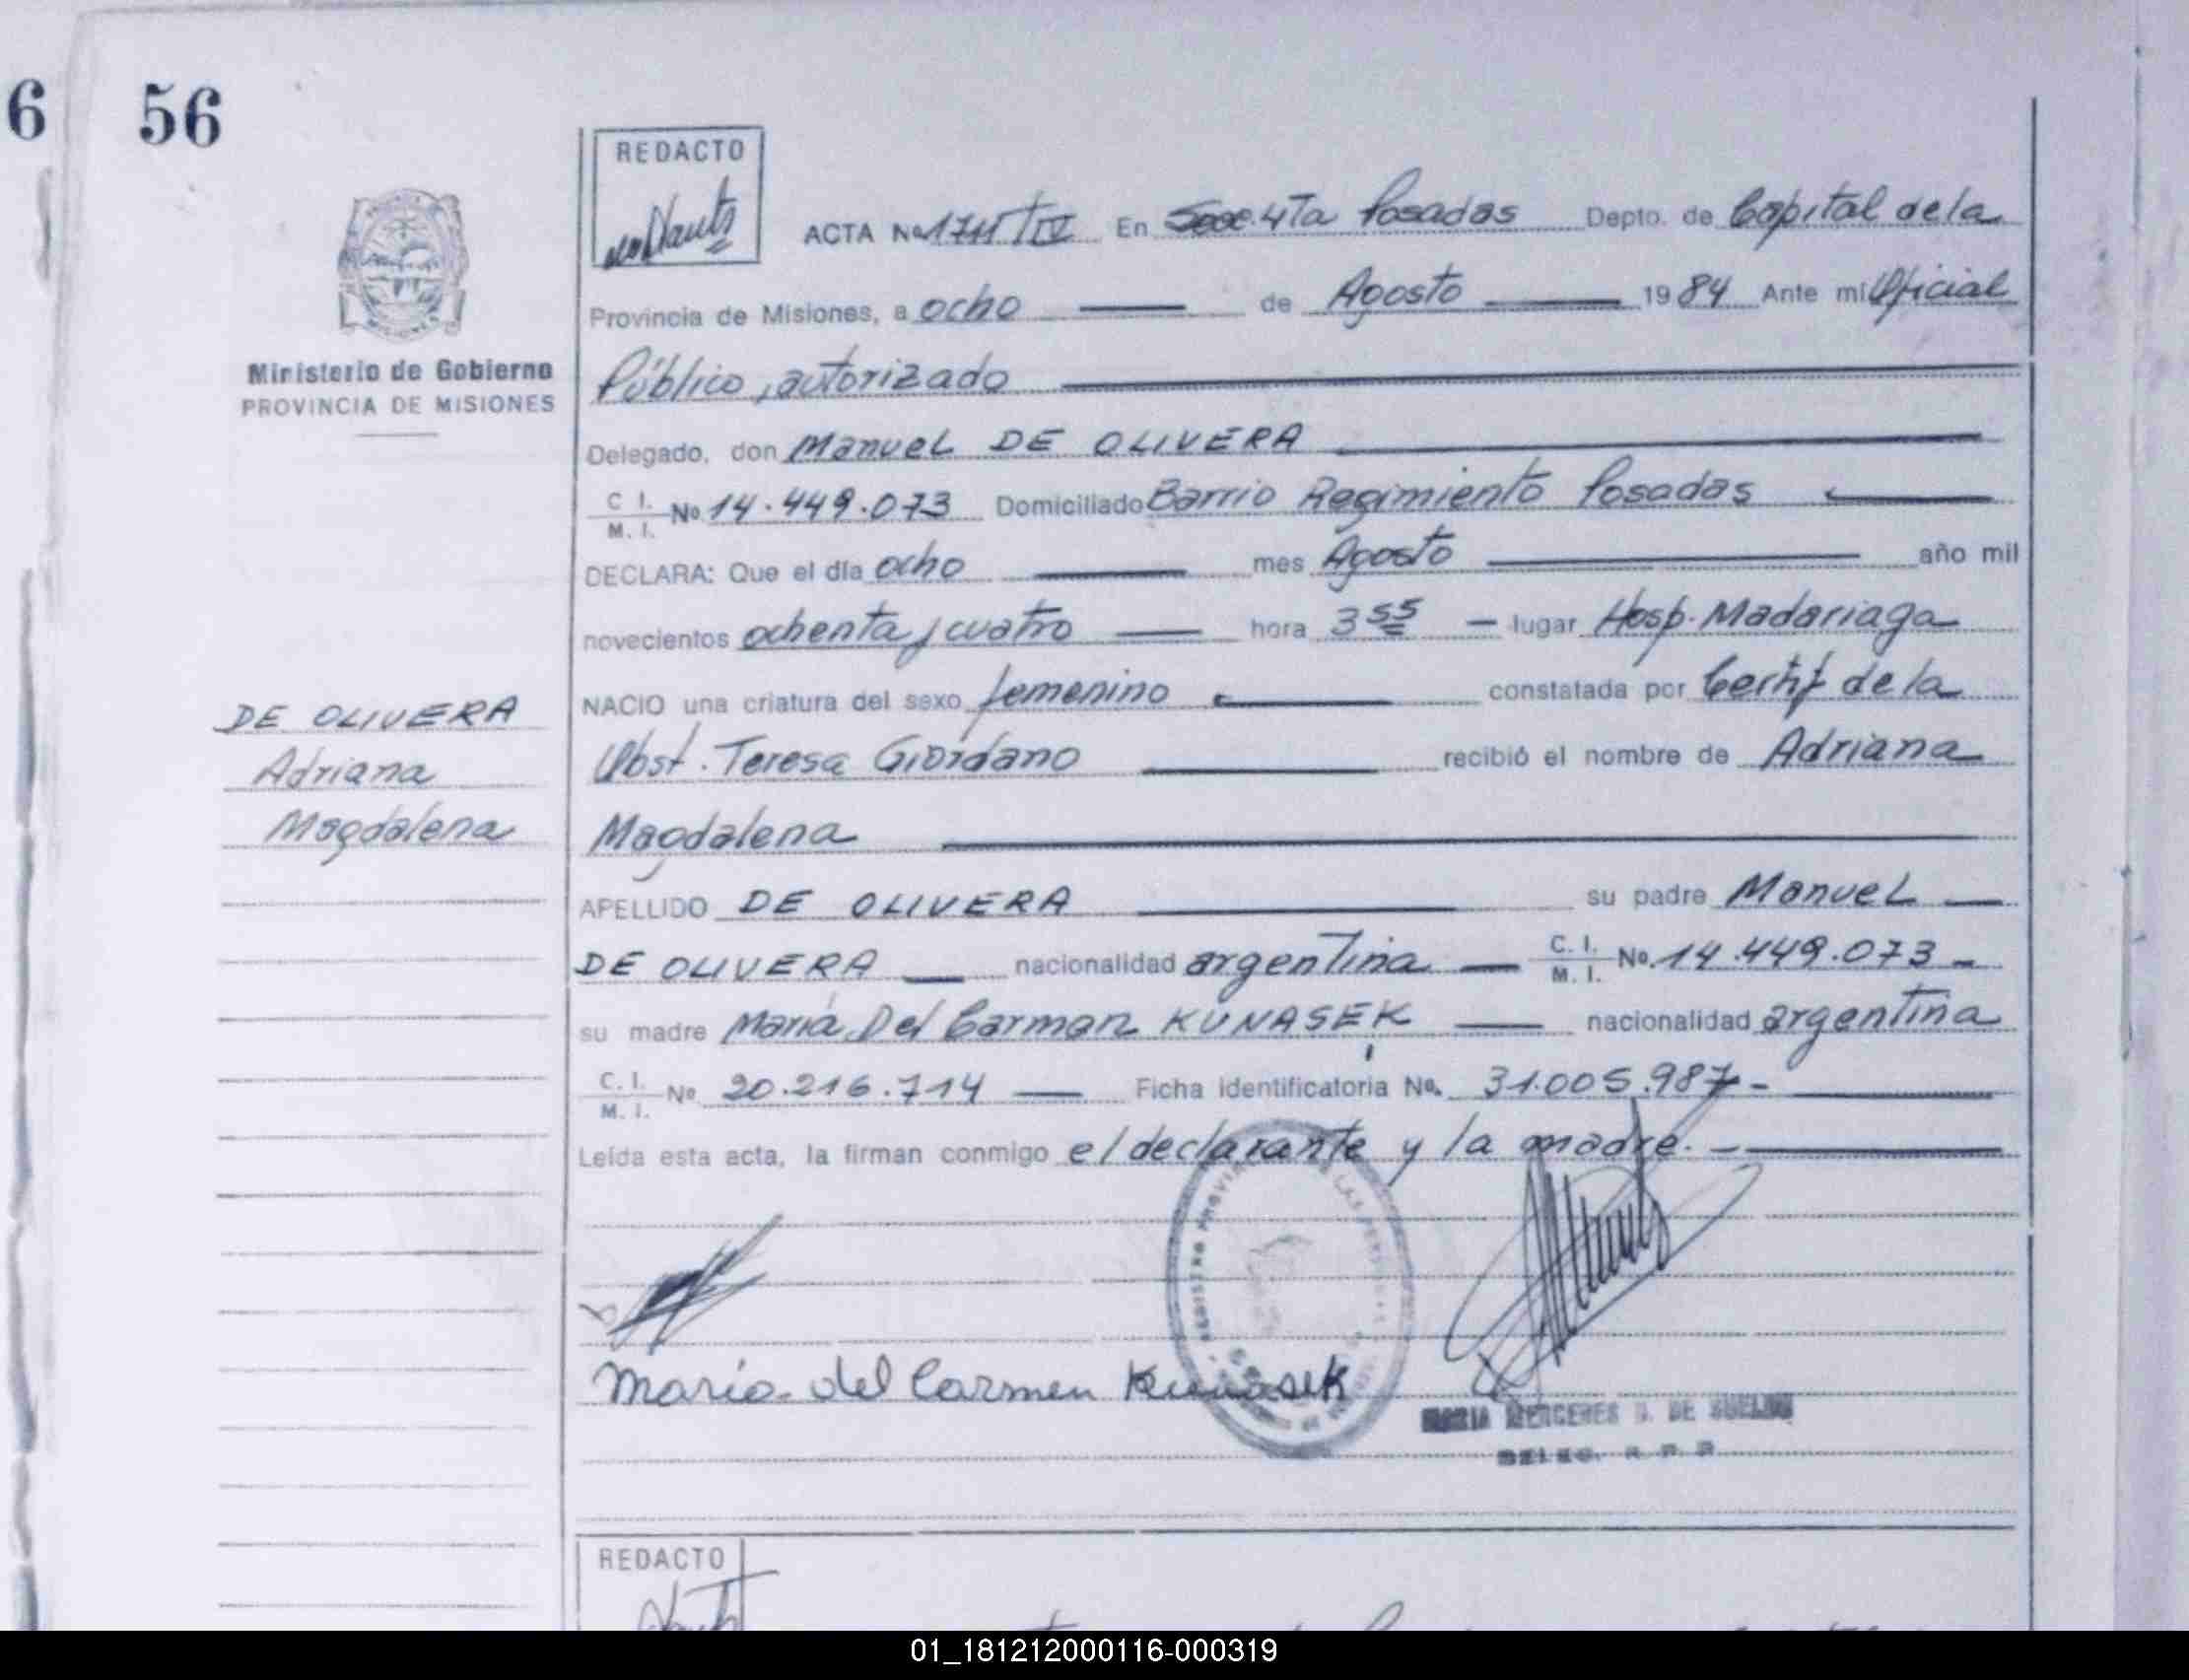 6 56
REDACTO
ACTA No 1711/IV En Secc. 4Ta Posadas Depto. de Capital de la
Provincia de Misiones, a ocho de Agosto 1984 Ante mi Oficial
Ministerio de Gobierno
PROVINCIA DE MISIONES
Público, autorizado
Delegado, don Manuel DE OLIVERA
C I. M. I. No 14.449.073 Domiciliado Barrio Regimiento Posadas
DECLARA: Que el día ocho mes Agosto año mil
novecientos ochenta y cuatro hora 3 55 lugar Hosp. Madariaga
NACIO una criatura del sexo femenino constatada por Certif de la
Obst. Teresa Giordano recibió el nombre de Adriana
Magdalena
DE OLIVERA
Adriana
Magdalena
APELLIDO DE OLIVERA su padre Manuel
DE OLIVERA nacionalidad argentina C. I. M. I. No. 14.449.073 -
su madre María Del Carmen KUNASEK nacionalidad argentina
C. I. M. I. No 20.216.714 Ficha identificatoria No. 31.005.987 -
Leída esta acta, la firman conmigo el declarante y la madre. -
María del Carmen Kunasek
MARIA MERCEDES DE
DELEG. R. P. P
REDACTO
01_181212000116-000319